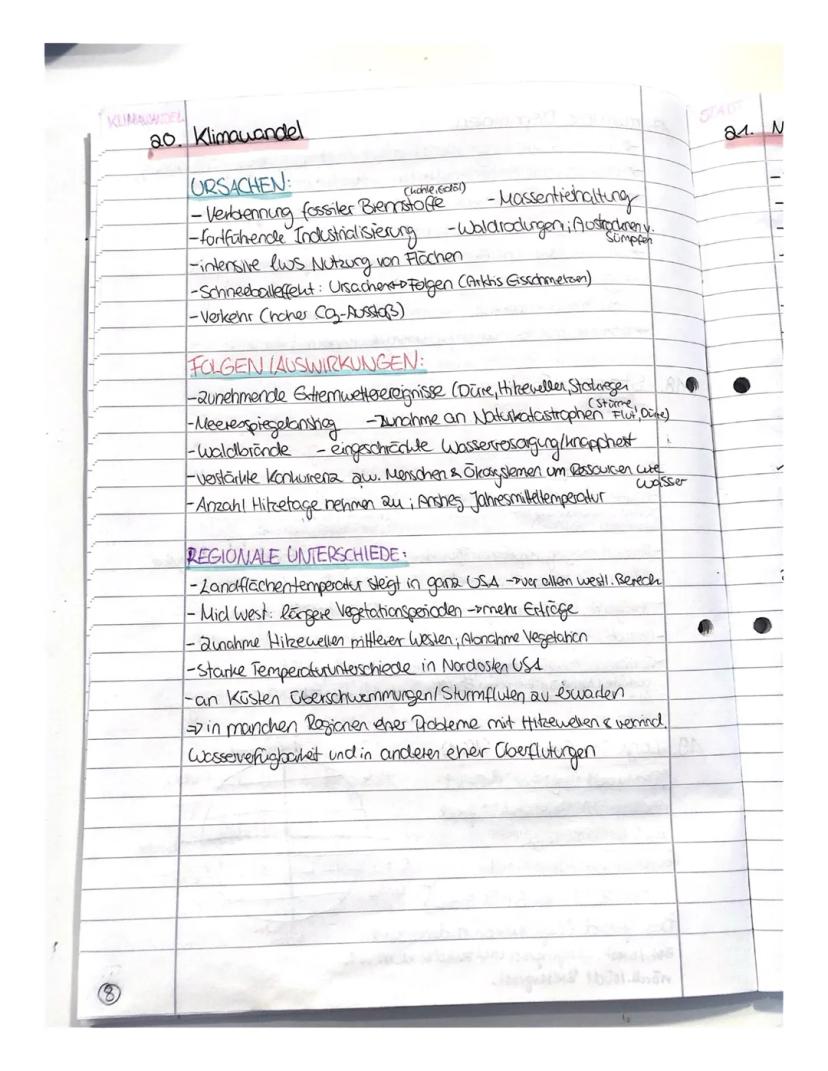 KLIMAWANDEL
STADT
20. Klimawandel
21. N
URSACHEN:
- Verbrennung fossiler Brennstoffe (Kohle, Erdöl) - Massentierhaltung
- fortführende Industrialisierung - Waldrodungen; Austrocknen v. Sümpfen
- intensive lws Nutzung von Flächen
- Schneeballeffekt: Ursachen↔Folgen (Arktis Eisschmelzen)
- Verkehr (hoher CO₂-Ausstoß)
FOLGEN/AUSWIRKUNGEN:
- zunehmende Extremwetterereignisse (Dürre, Hitzewellen, Starkregen
- Meeresspiegelanstieg - Zunahme an Naturkatastrophen (Stürme, Flut, Dürre)
- Waldbrände - eingeschränkte Wasserversorgung/knappheit
- verstärkte Konkurrenz zw. Menschen & Ökosystemen um Ressourcen wie Wasser
- Anzahl Hitzetage nehmen zu; Anstieg Jahresmitteltemperatur
REGIONALE UNTERSCHIEDE:
- Landflächentemperatur steigt in ganz USA → vor allem westl. Bereich
- Mid West: längere Vegetationsperioden → mehr Erträge
- Zunahme Hitzewellen mittlerer Westen; Abnahme Vegetation
- Starke Temperaturunterschiede in Nordosten USA
- an Küsten Überschwemmungen/Sturmfluten zu erwarten
⇒ in manchen Regionen eher Probleme mit Hitzewellen & vermind.
Wasserverfügbarkeit und in anderen eher Überflutungen
8